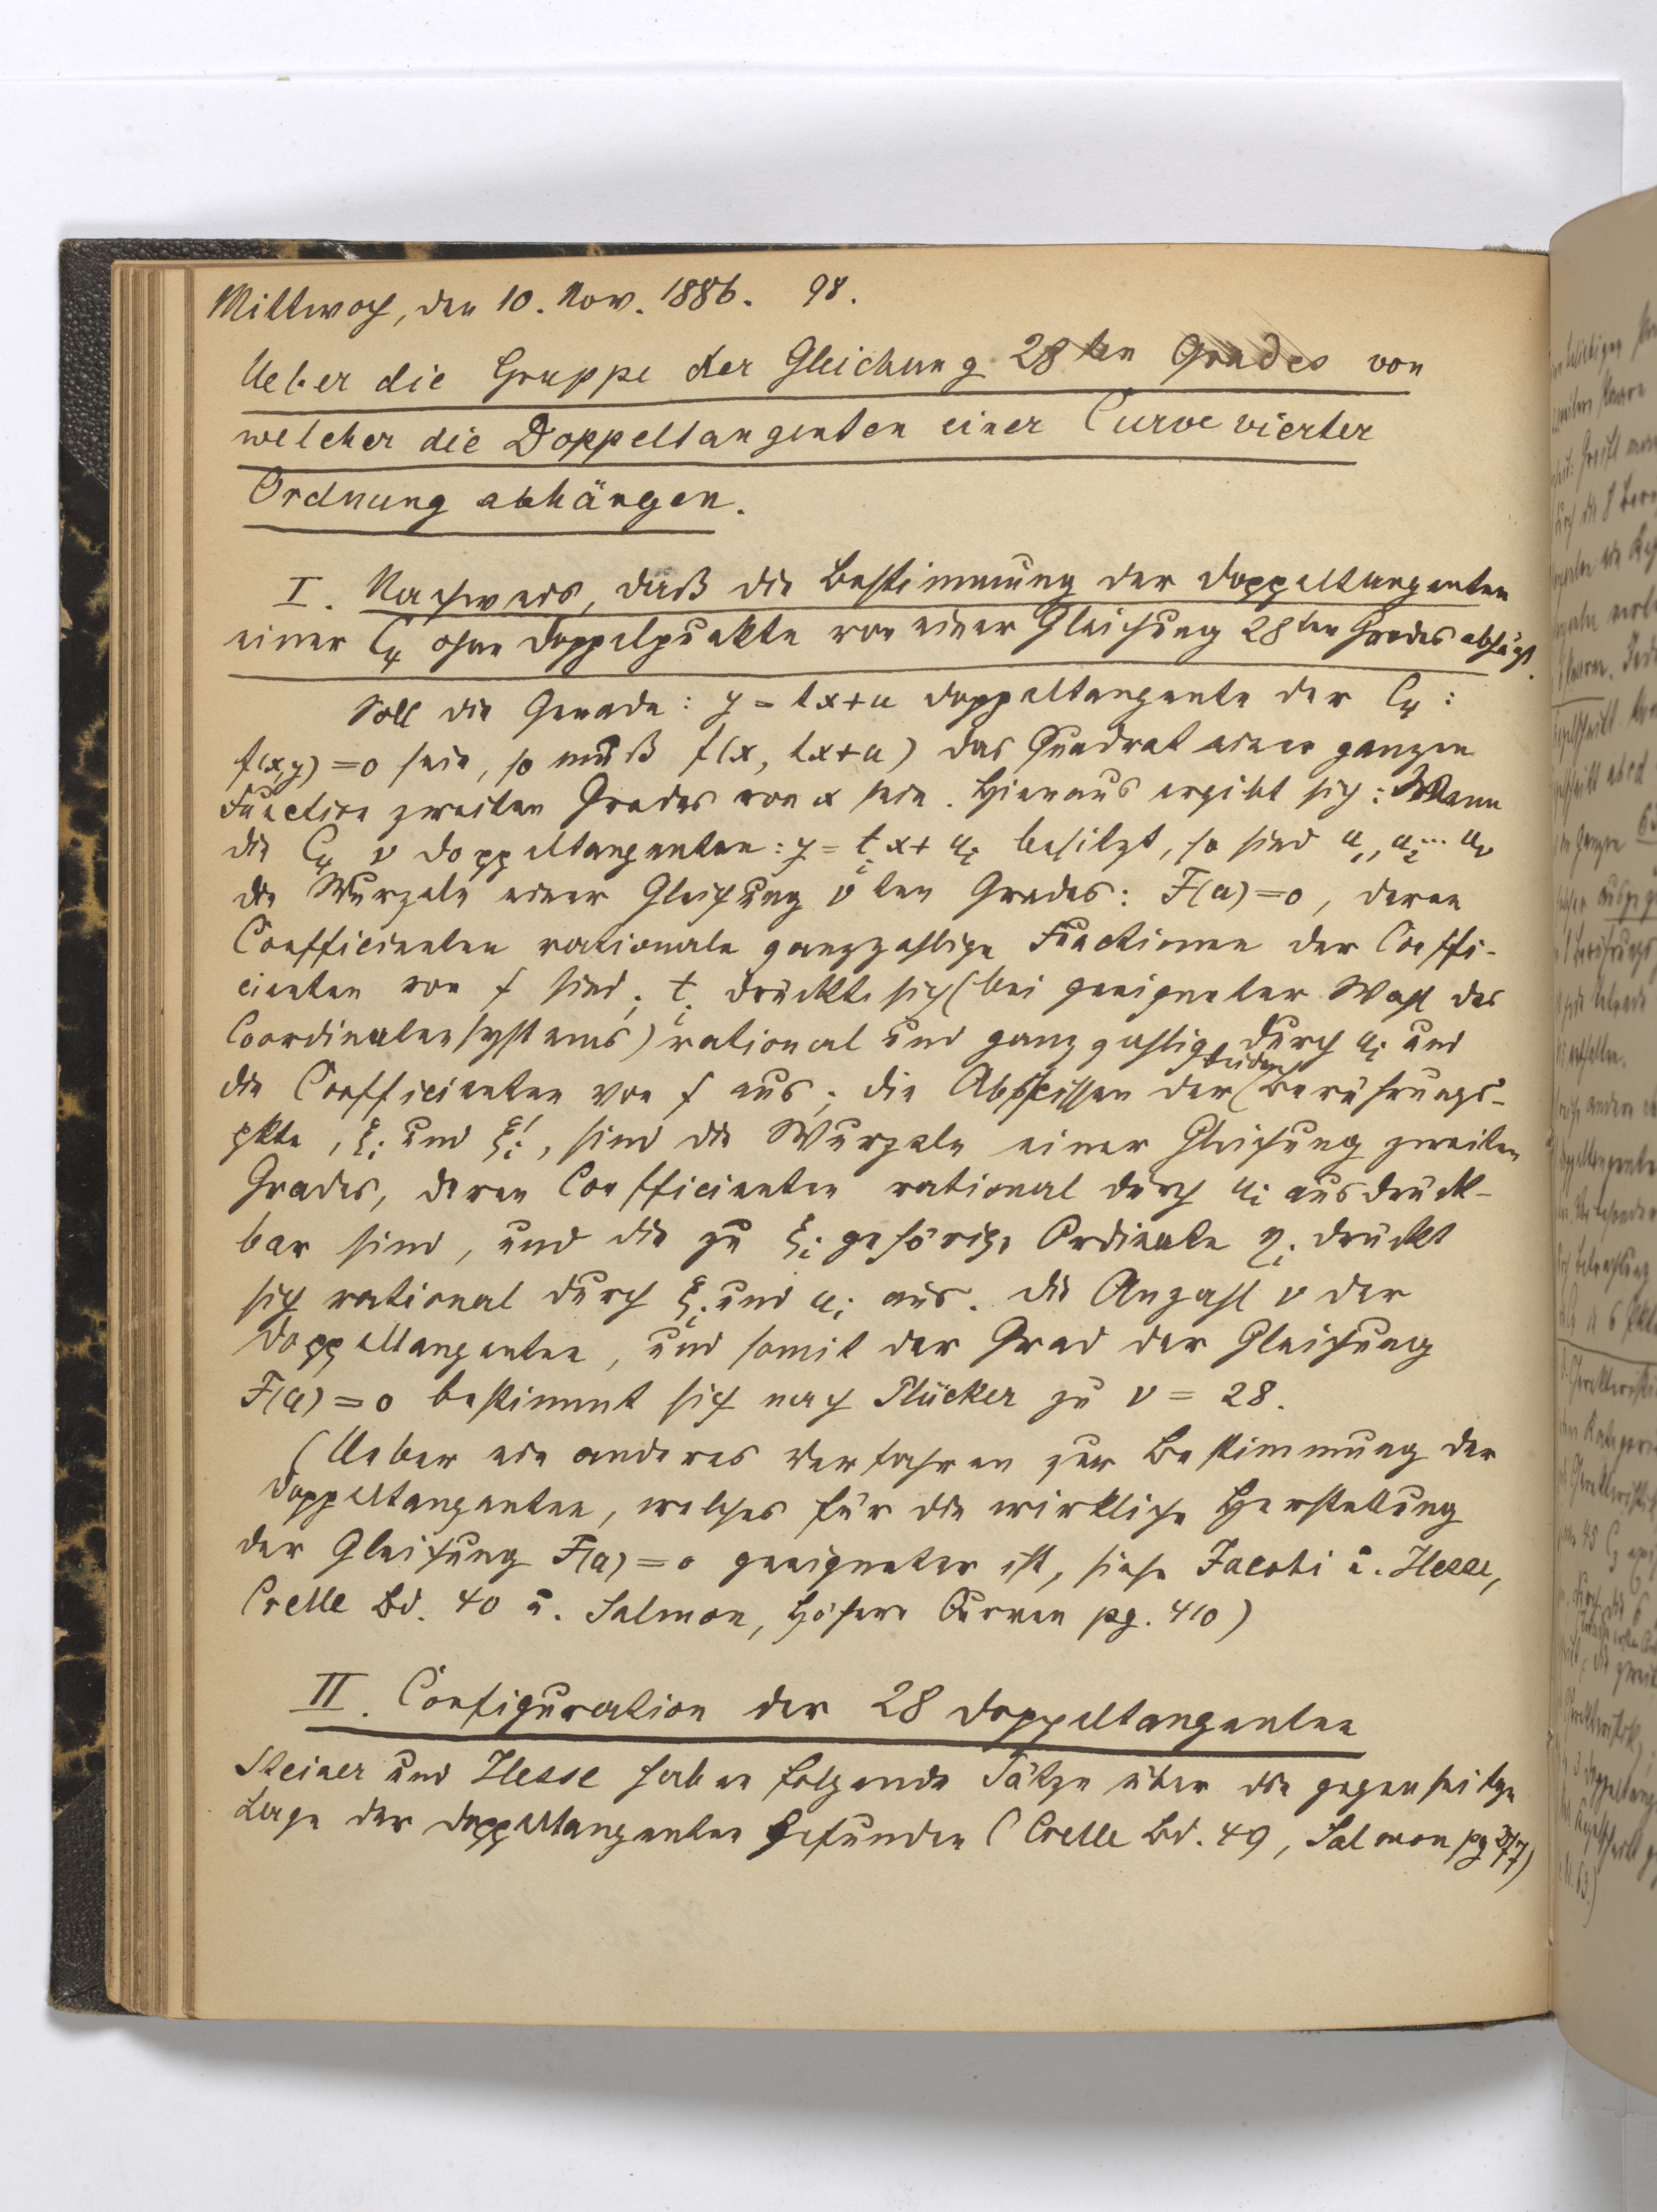 Mittwoch, den 10. Nov. 1886. 98.
Ueber die Gruppe der Gleichung 28ten Grades von
welcher die Doppeltangenten einer Curve vierter
Ordnung abhängen.
I. Nachweis, daß die Bestimmung der Doppeltangenten
einer C₄ ohne Doppelpunkte von einer Gleichung 28ten Grades abhängt.
Soll die Gerade: y = tx+u Doppeltangente der C₄:
f(xy) = 0 sein, so muß f(x, tx+u) das Quadrat einer ganzen
Function zweiten Grades von x sein. Hieraus ergibt sich: Wenn
die C₄ ν Doppeltangenten: y = tᵢx + uᵢ besitzt, so sind u₁, u₂... uν
die Wurzeln einer Gleichung νten Grades: F(u) = 0, deren
Coefficienten rationale ganzzahlige Functionen der Coeffi-
cienten von f sind; tᵢ drückt sich (bei geeigneter Wahl des
Coordinatensystems) rational und ganzzahlig durch uᵢ und
die Coefficienten von f aus; die Abscissen der beiden Berührungs-
pkte, ξᵢ und ξᵢ', sind die Wurzeln einer Gleichung zweiten
Grades, deren Coefficienten rational durch uᵢ ausdrück-
bar sind, und die zu ξᵢ gehörige Ordinate ηᵢ drückt
sich rational durch ξᵢ und uᵢ aus. Die Anzahl ν der
Doppeltangenten, und somit der Grad der Gleichung
F(u) = 0 bestimmt sich nach Plücker zu ν = 28.
(Ueber ein anderes Verfahren zur Bestimmung der
Doppeltangenten, welches für die wirkliche Herstellung
der Gleichung F(u) = 0 geeigneter ist, siehe Jacobi u. Hesse,
Crelle Bd. 40 u. Salmon, Höhere Curven pg. 410)
II. Configuration der 28 Doppeltangenten
Steiner und Hesse haben folgende Sätze über die gegenseitige
Lage der Doppeltangenten gefunden (Crelle Bd. 49, Salmon pg